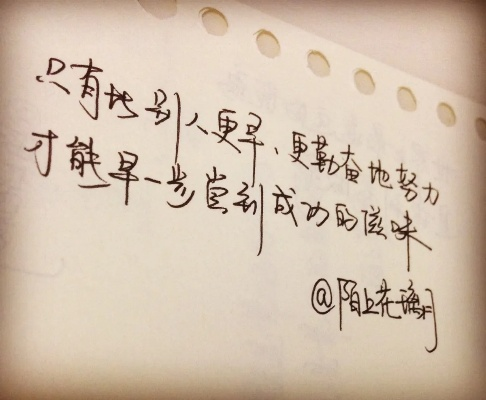 只有比别人更早、更勤奋地努力
才能早一步尝到成功的滋味
@陌上花满